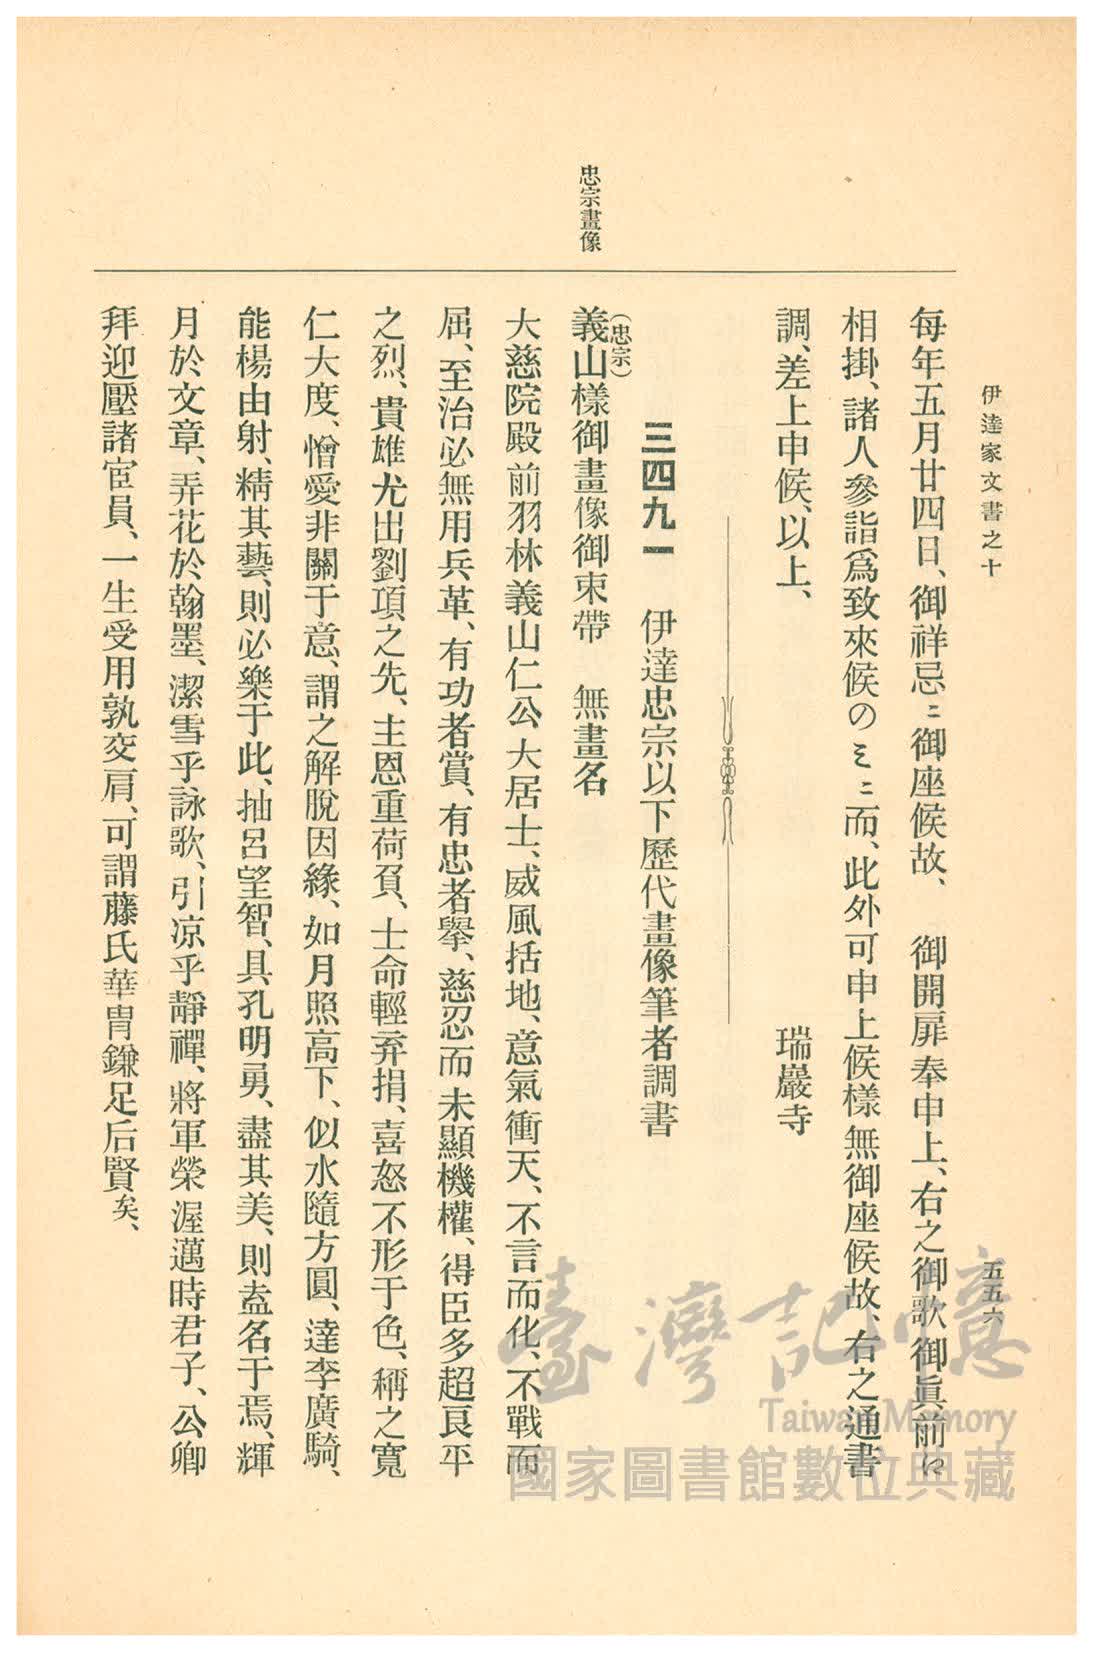 伊達家文書之十
五五六
每年五月廿四日、御祥忌ニ御座候故、　御開扉奉申上、右之御歌御眞前に
相掛、諸人參詣爲致來候のミニ而、此外可申上候樣無御座候故、右之通書
調、差上申候、以上、
瑞巖寺
三四九一　伊達忠宗以下歷代畫像筆者調書
忠宗畫像
（忠宗）
義山樣御畫像御束帶　無畫名
大慈院殿前羽林義山仁公大居士、威風括地、意氣衝天、不言而化、不戰而
屈、至治必無用兵革、有功者賞、有忠者擧、慈忍而未顯機權、得臣多超良平
之烈、貴雄尤出劉項之先、主恩重荷負、士命輕弃捐、喜怒不形于色、稱之寬
仁大度、憎愛非關于意、謂之解脫因緣、如月照高下、似水隨方圓、達李廣騎、
能楊由射、精其藝、則必樂于此、抽呂望智、具孔明勇、盡其美、則盍名于焉、輝
月於文章、弄花於翰墨、潔雪乎詠歌、引凉乎靜禪、將軍榮渥邁時君子、公卿
拜迎壓諸宦員、一生受用孰交肩、可謂藤氏華冑鎌足后賢矣、
臺灣記憶
Taiwan Memory
國家圖書館數位典藏